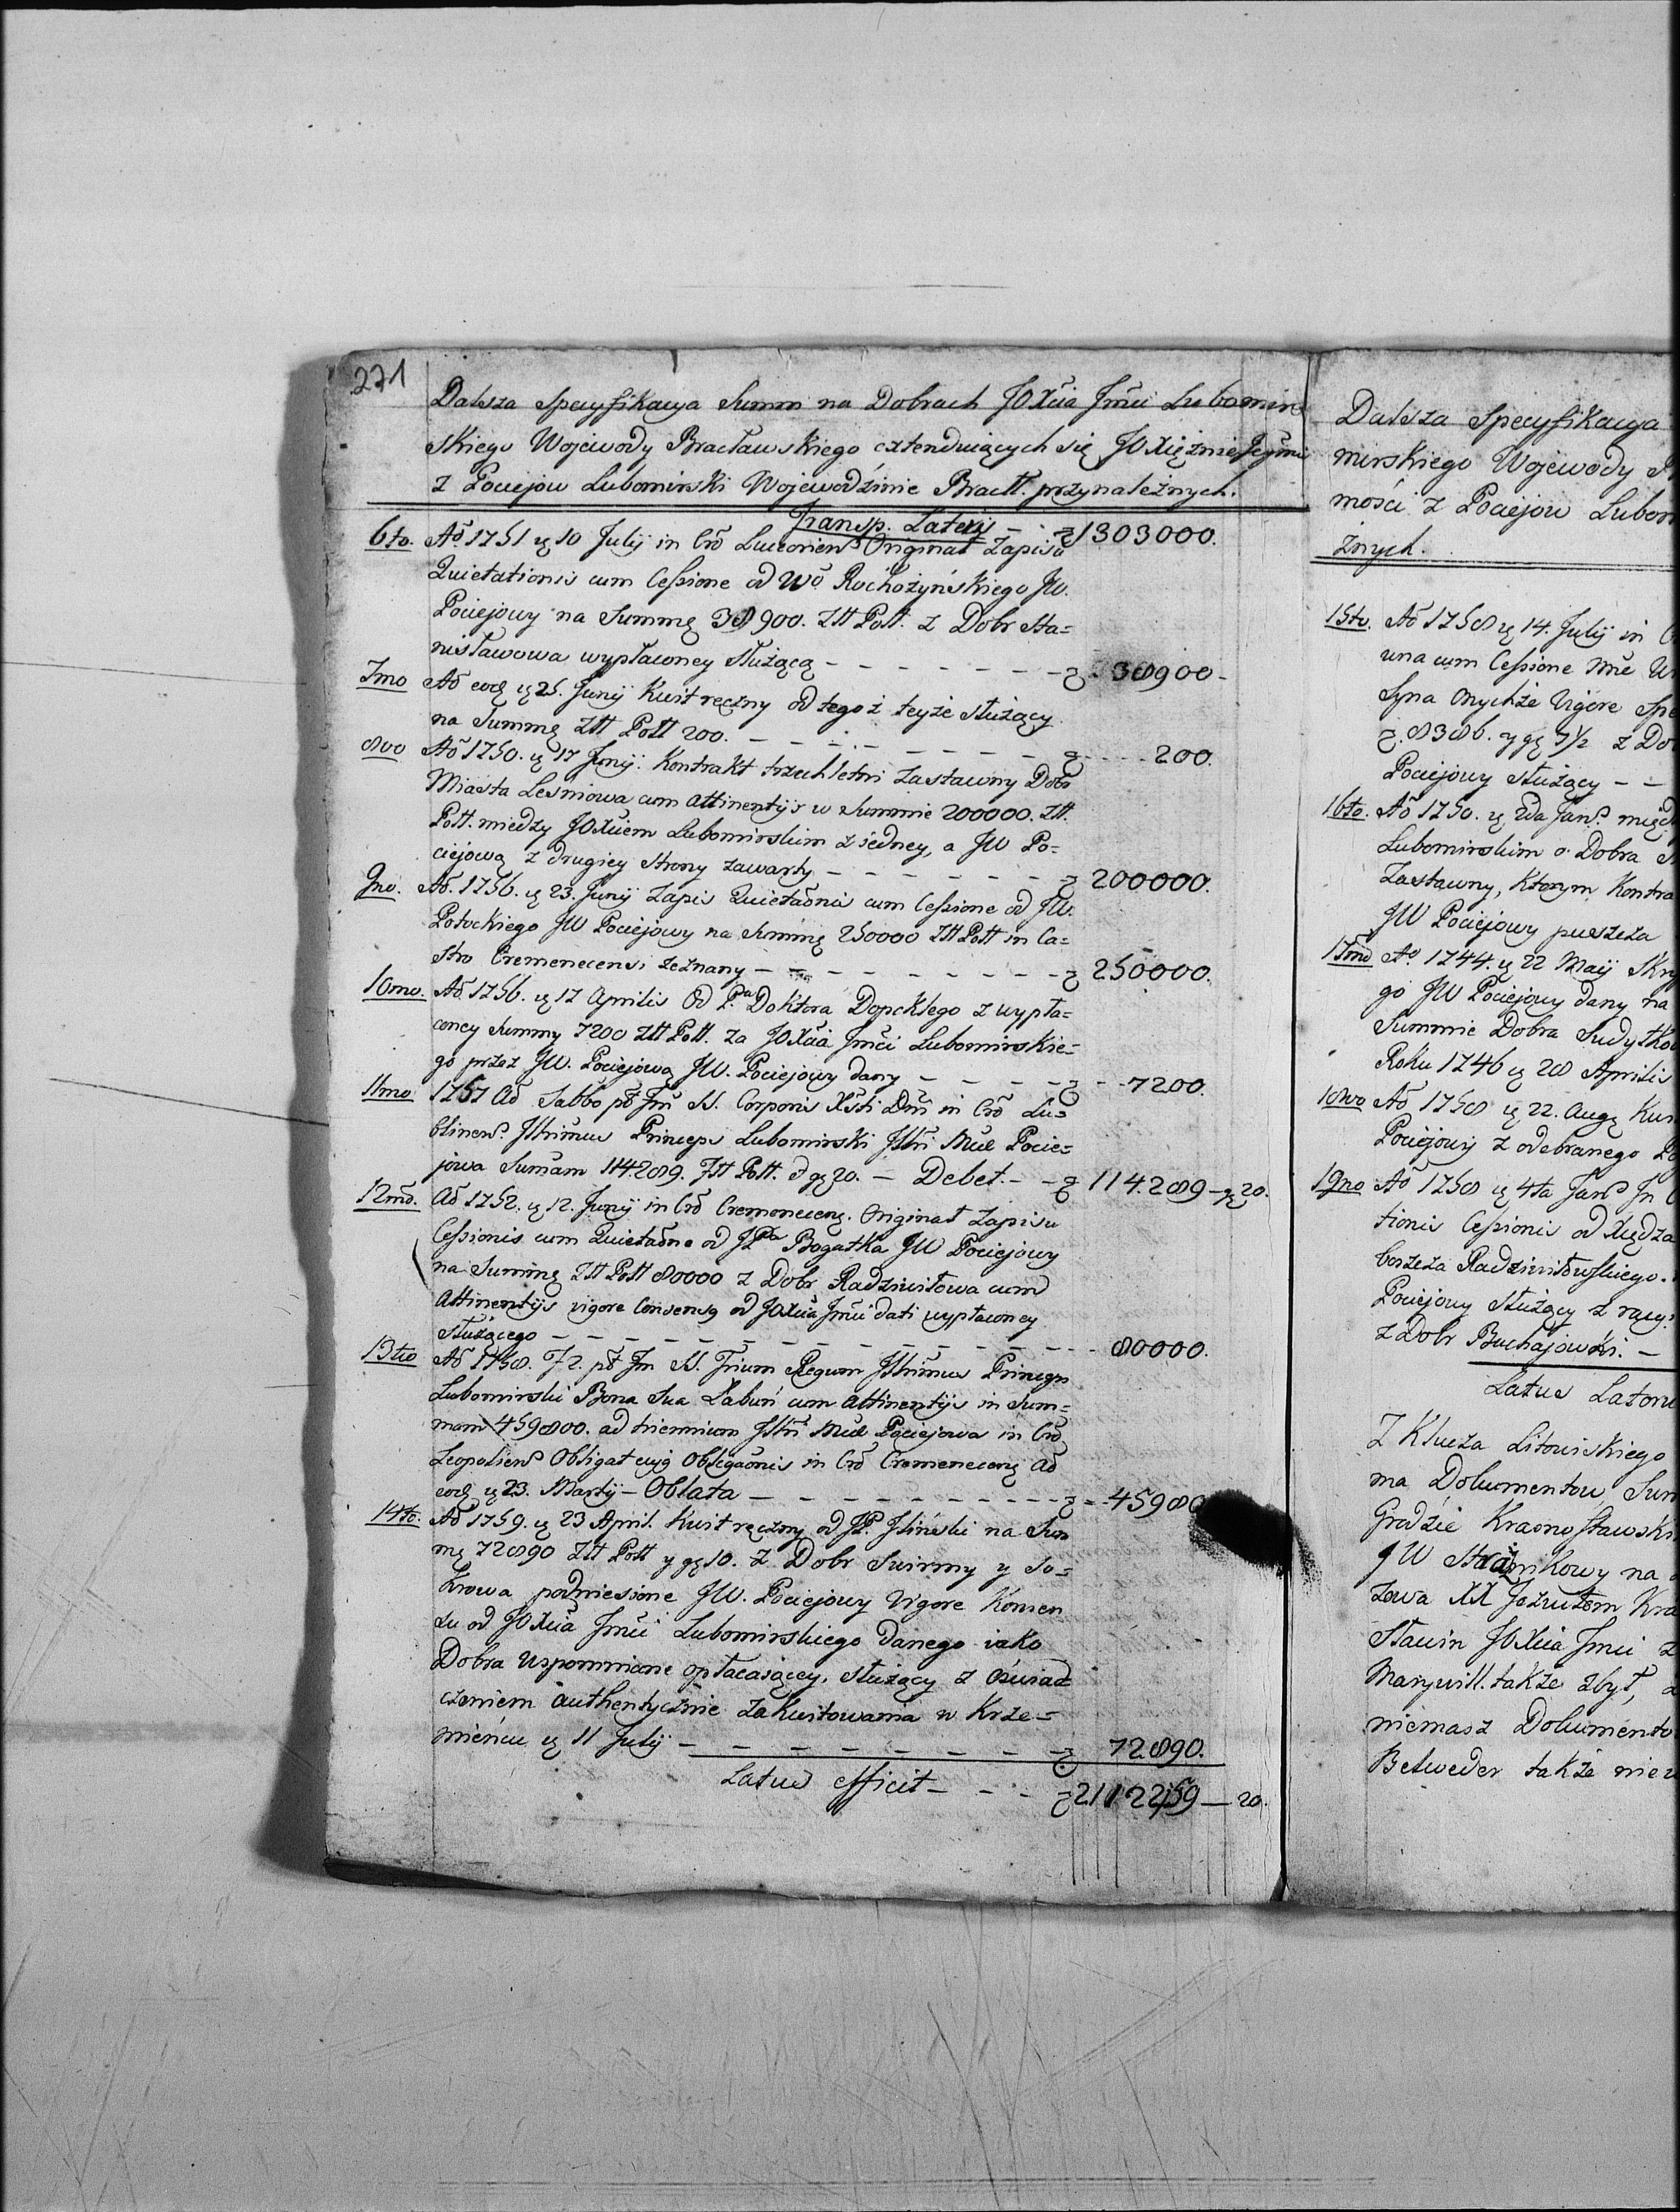 271
Dalsza Specyfikacya Summ na Dobrach JOXcia Jmci Lubomir
skiego Wojewody Bracławskiego extenduiących się JOXiężnie Jeymci
z Pociejow Lubomirski Wojewodzinie Bractt. przynależnych.
Transp. Lateris - - 1303000.
6to. Aō 1751 ę 10 Julij in Crō Luceorien Originał Zapisu
Quietationis cum Cessione od Wō Rochożyńskiego JW.
Pociejowy na Summę 38900. Ztt Pott. z Dobr Sta=
nisławowa wypłaconey Służącą - - - - - - - 38900-
7mo Aō eod ę 25. Junij Kwit ręczny od tegoż teyże służący
na Summę Ztt Pott 200. - - - - - - - - 200.
8vo Aō 1750. ę 17 Junij. Kontrakt trzechletni Zastawny Dobr
Miasta Lesniowa cum attinentijs w Summie 200000. Ztt.
Pott. miedzy JOXciem Lubomirskim z iedney, a JW Po=
ciejową z drugiey Strony zawarty - - - - - - 200000.
9no. Aō. 1756. ę 23. Junij Zapis Quietaōnis cum Cessione od JW.
Potockiego JW Pociejowy na Summę 250000 Ztt Pott in Ca=
stro Cremenecensi zeznany - - - - - - - - 250000.
10mo. Aō. 1756. ę 17 Aprilis Od P.na Doktora Dopcklego z wypła=
coney Summy 7200 Ztt Pott. za JOXcia Jmci Lubomirskie=
go przez JW. Pociejową JW. Pociejowy dany - - - - 7200.
11mo 1757 Aō Sabbō pō Fm SS. Corporis Xsti Dni in Crō Lu=
blinen. Jllrimus Princeps Lubomirski Jllri Mūe Pocie=
jowa Sumam 114289. Ztt Pott. d gę 20. - Debet. - - 114.289-gę 20.
12mō. Aō 1752. ę 12. Junij in Crō Cremenecen. Originał Zapisu
Cessionis cum Quietaōne od JPa Bogatka JW Pociejowy
na Summę Ztt Pott 80000 z Dobr Radziwiłowa cum
Attinentijs vigore Consensę od JOXcia Jmci dati wypłaconey
służącego - - - - - - - - - - - 80000.
13tio Aō 1758. f. 2. pō Fm SS. Trium Regum Jllrimus Princeps
Lubomirski Bona Sua Łabuń cum attinentijs in Sum=
mam 459800. ad triennium Jllri Mūe Pociejowa in Crō
Leopolien Obligat cuję Obligaōnis in Crō Cremenecen Aō
eod ę 23. Martij - Oblata - - - - - - - - - 45980
14to. Aō 1759. ę 23 April. Kwit ręczny od JP. Jlinski na Sum
mę 72890 Ztt Pott y gę 10. Z Dobr Swirmy y So=
krowa podniesione JW. Pociejowy Vigore Konsen
su od JOXcia Jmci Lubomirskiego danego iako
Dobra wspomnione opłacaiącey, służący z oświad
czeniem authentycznie zakwitowania w Krze=
mieńcu ę 11 Julij - - - - - - - - 72890.
Latus efficit - - - 21122,59 - 20.
Dalsza Specyfikacya
mirskiego Wojewody
mości z Pociejow Lubom
żnych.
15to. Aō 1758 ę 14. Julij in
una cum Cessione
Syna onychże Vigore
8386. y gę 7½ z Do
Pociejowy służący - -
16to. Aō 1750. ę 2da Jan. międ
Lubomirskim o Dobra
Zastawny, ktorym Kontra
JW Pociejowy puszcza
17mō Aō 1744. ę 22 Maij Skry
go JW Pociejowy dany na
Summie Dobra Sudyłkow
Roku 1746 ę 28 Aprilis
18vo Aō 1758 ę 22. Augę Kwi
Pociejowy z odebranego
19no Aō 1758 ę 4ta Jan In
tionis Cessionis od Xiędza
boszcza Radziwiłowskiego.
Pociejowy służący z racy
z Dobr Buchajowki. -
Latus Latoru
Z Klucza Litowiskiego
ma Dokumentow Sum
Grodzie Krasnostawski
JW Strażnikowy na
zowa XX Jezuitom Kra
Stawin JOXcia Jmci
Marywill. także zbył,
niemasz Dokumento
Betweder także nie